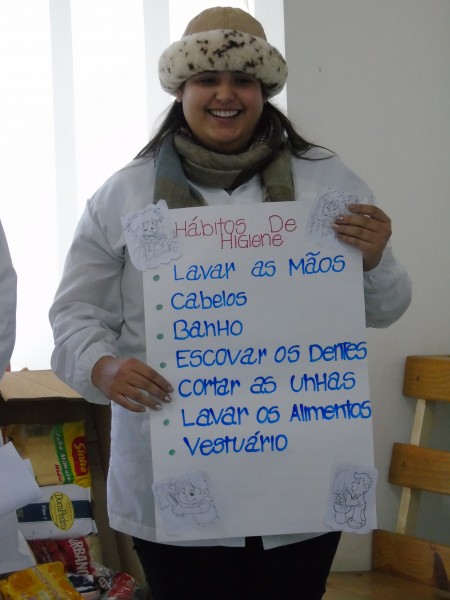 Hábitos De
Higiene
Lavar as Mãos
Cabelos
Banho
Escovar os Dentes
Cortar as Unhas
Lavar os Alimentos
Vestuário
Sinhá
Dom Pedro